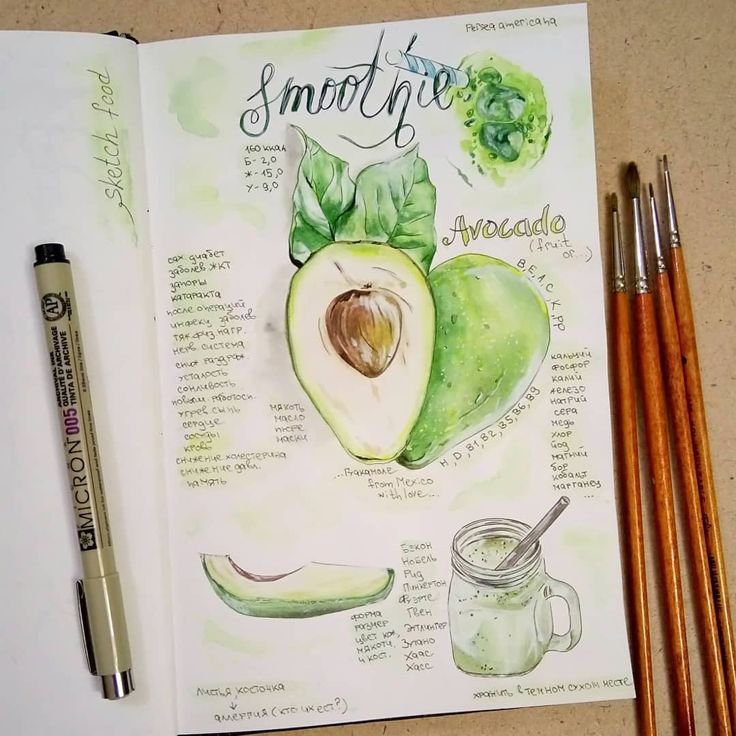 Persea americana
Smoothie
sketch food
160 ккал
Б - 2,0
Ж - 15,0
У - 9,0
Avocado
(fruit
or...)
В, Е, А, С, К, РР
H, D, B1, B2, B5, B6, B9
сах. диабет
заболев. ЖКТ
запоры
катаракта
после операций
инфекц. заболев.
тяж. физ. нагр.
нерв. система
сниж. раздраж.
усталость
сонливость
новыш. работосп.
угрев. сыпь
сердце
сосуды
кровь
снижение холестерина
снижение давл.
память
мякоть
масло
пюре
маски
кальций
фосфор
калий
железо
натрий
сера
медь
хлор
йод
магний
бор
кобальт
марганец
...
...Гвакамоле
from Mexico
with love...
Бэкон
Нобель
Рид
Пинкертон
Фуэрте
Гвен
Эттингер
Зутано
Хаас
Хасс
форма
размер
цвет кож.
мякоти,
и кост.
листья, косточка
↓
аллергия (кто их ест?)
хранить в темном сухом месте
AP
ARCHIVAL INK
QUALITÉ D'ARCHIVAGE
TINTA DE ARCHIVE
MICRON 005